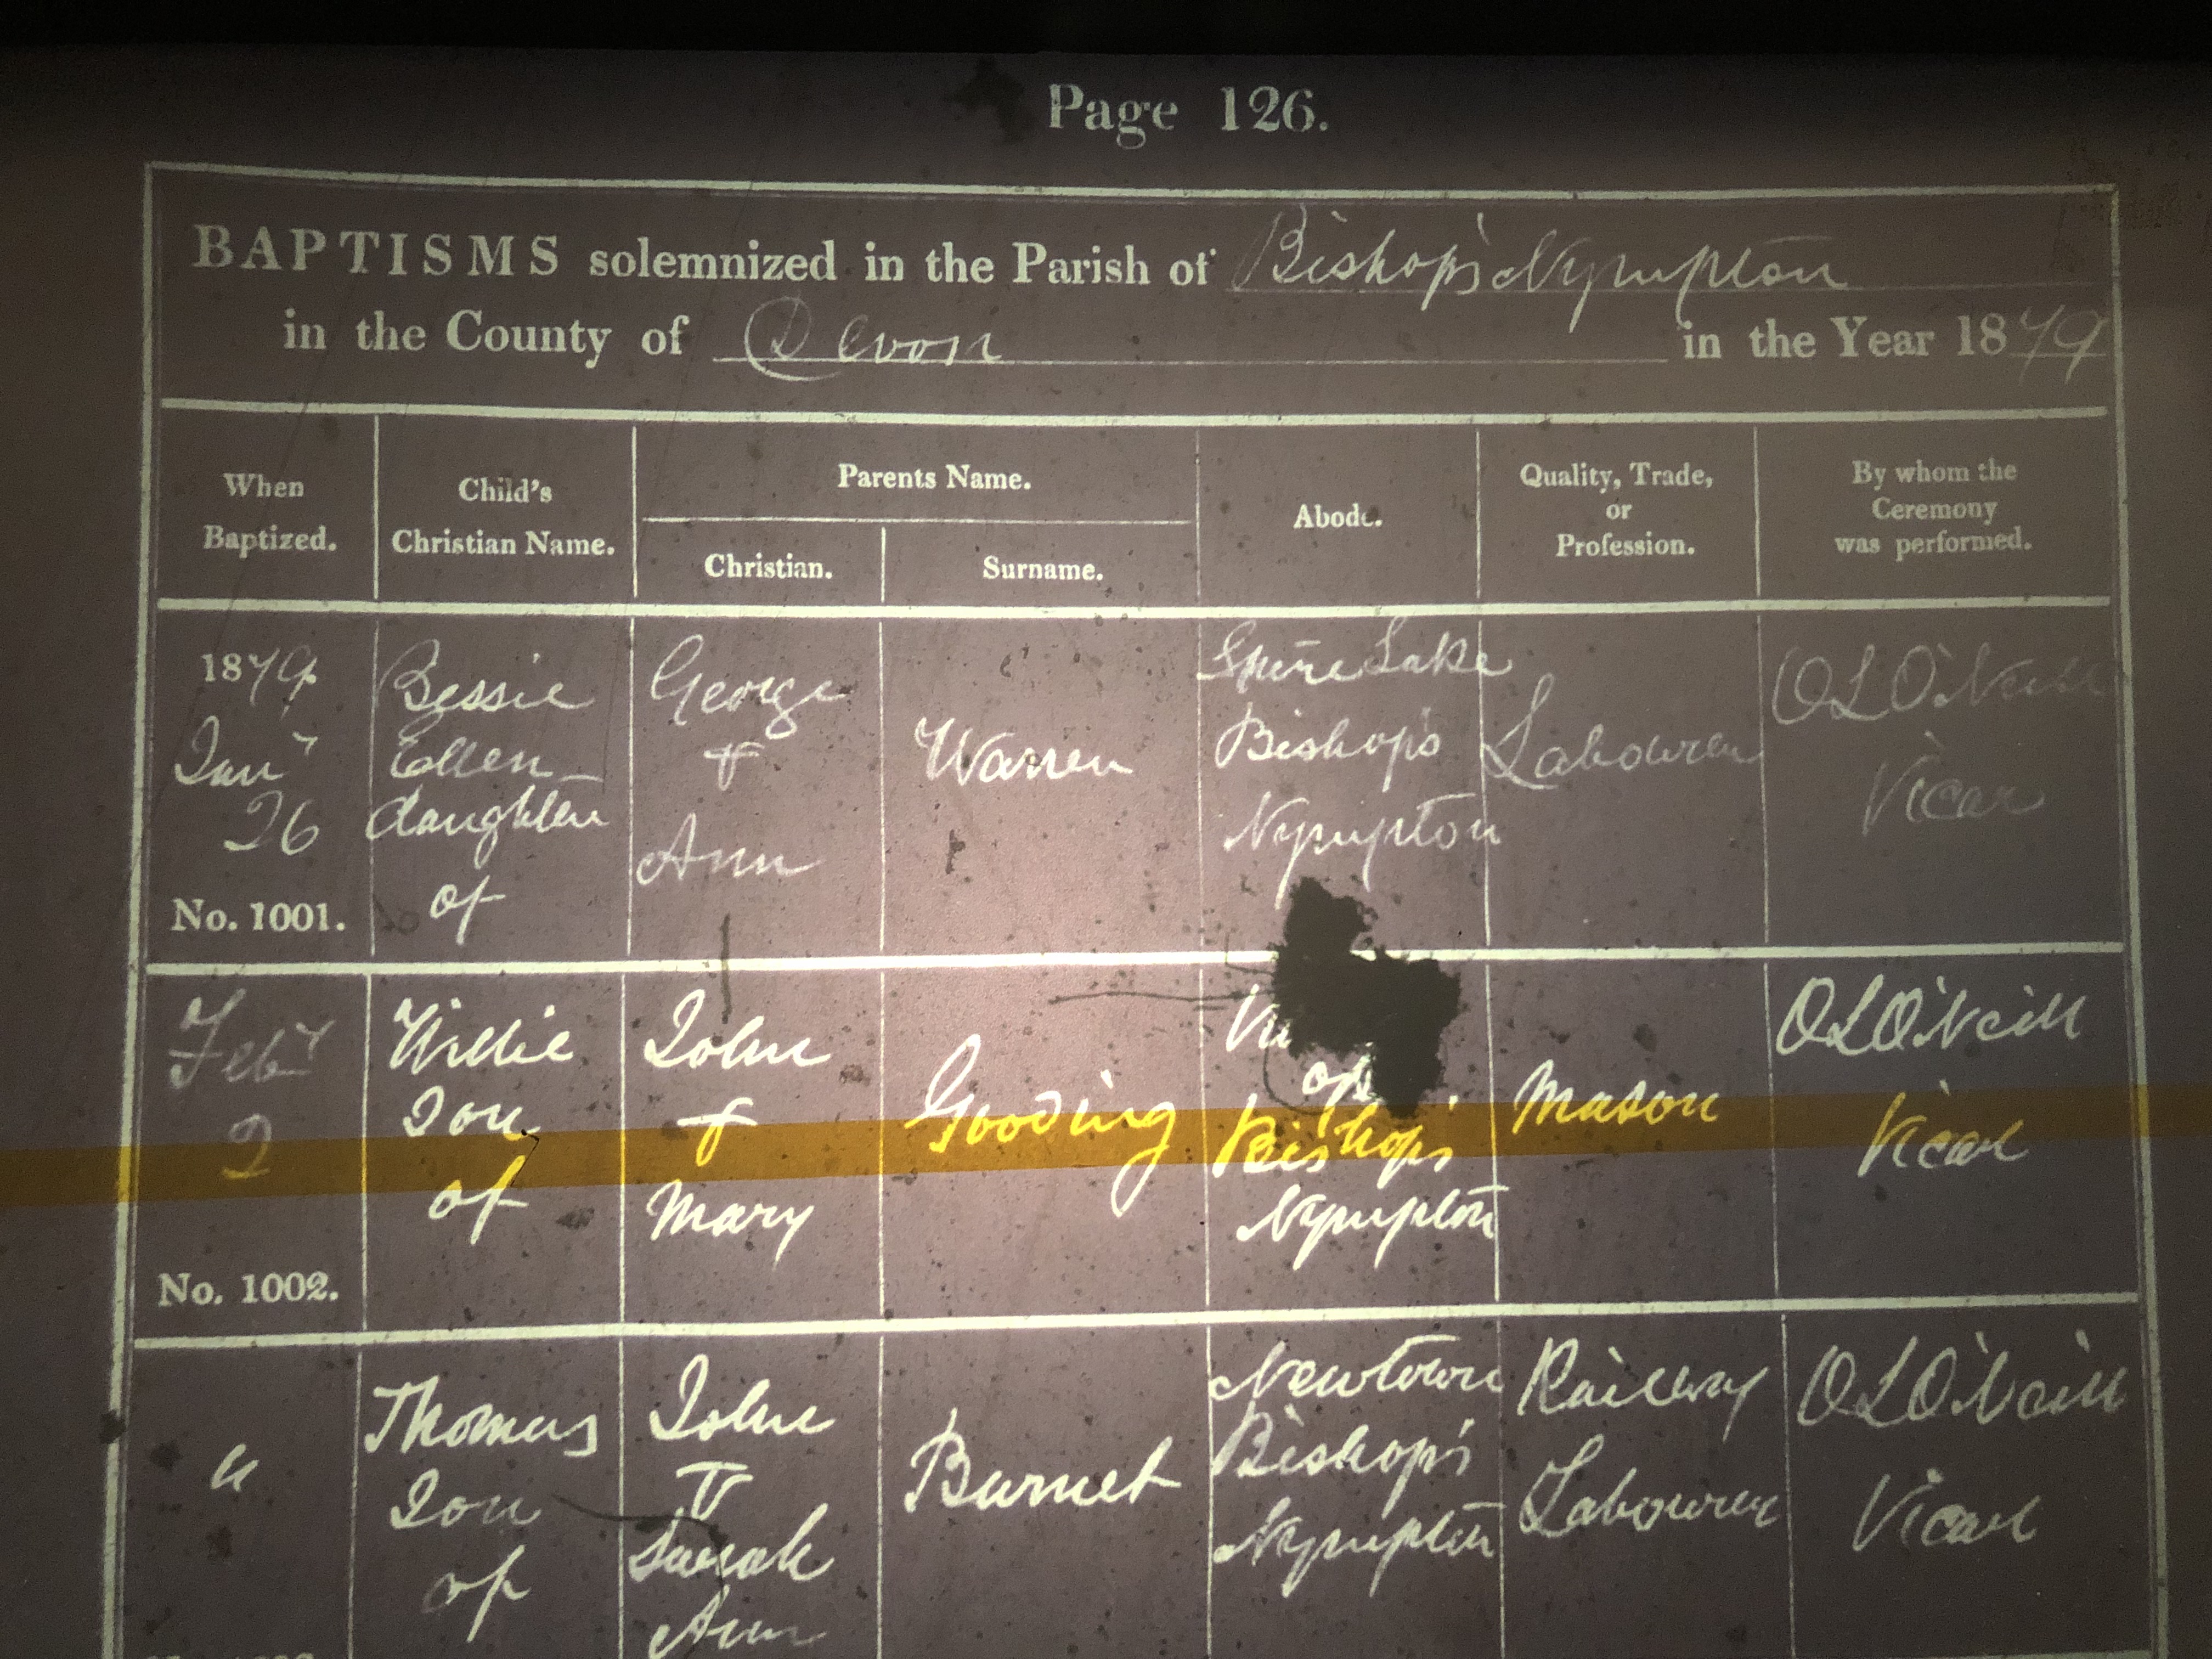 Page 126.
BAPTISMS solemnized in the Parish of Bishop's Nympton
in the County of Devon in the Year 1879
When Baptized.
Child's Christian Name.
Parents Name.
Christian.
Surname.
Abode.
Quality, Trade, or Profession.
By whom the Ceremony was performed.
1879
Jany
26
No. 1001.
Bessie
Ellen
daughter
of
George
&
Ann
Warren
Lake
Bishop's
Nympton
Labourer
O L O'Neill
Vicar
Feby
2
No. 1002.
Willie
Son
of
John
&
Mary
Gooding
of
Bishop's
Nympton
Mason
O L O'Neill
Vicar
"
Thomas
Son
of
John
&
Sarah
Ann
Burnet
Newtown
Bishop's
Nympton
Railway
Labourer
O L O'Neill
Vicar